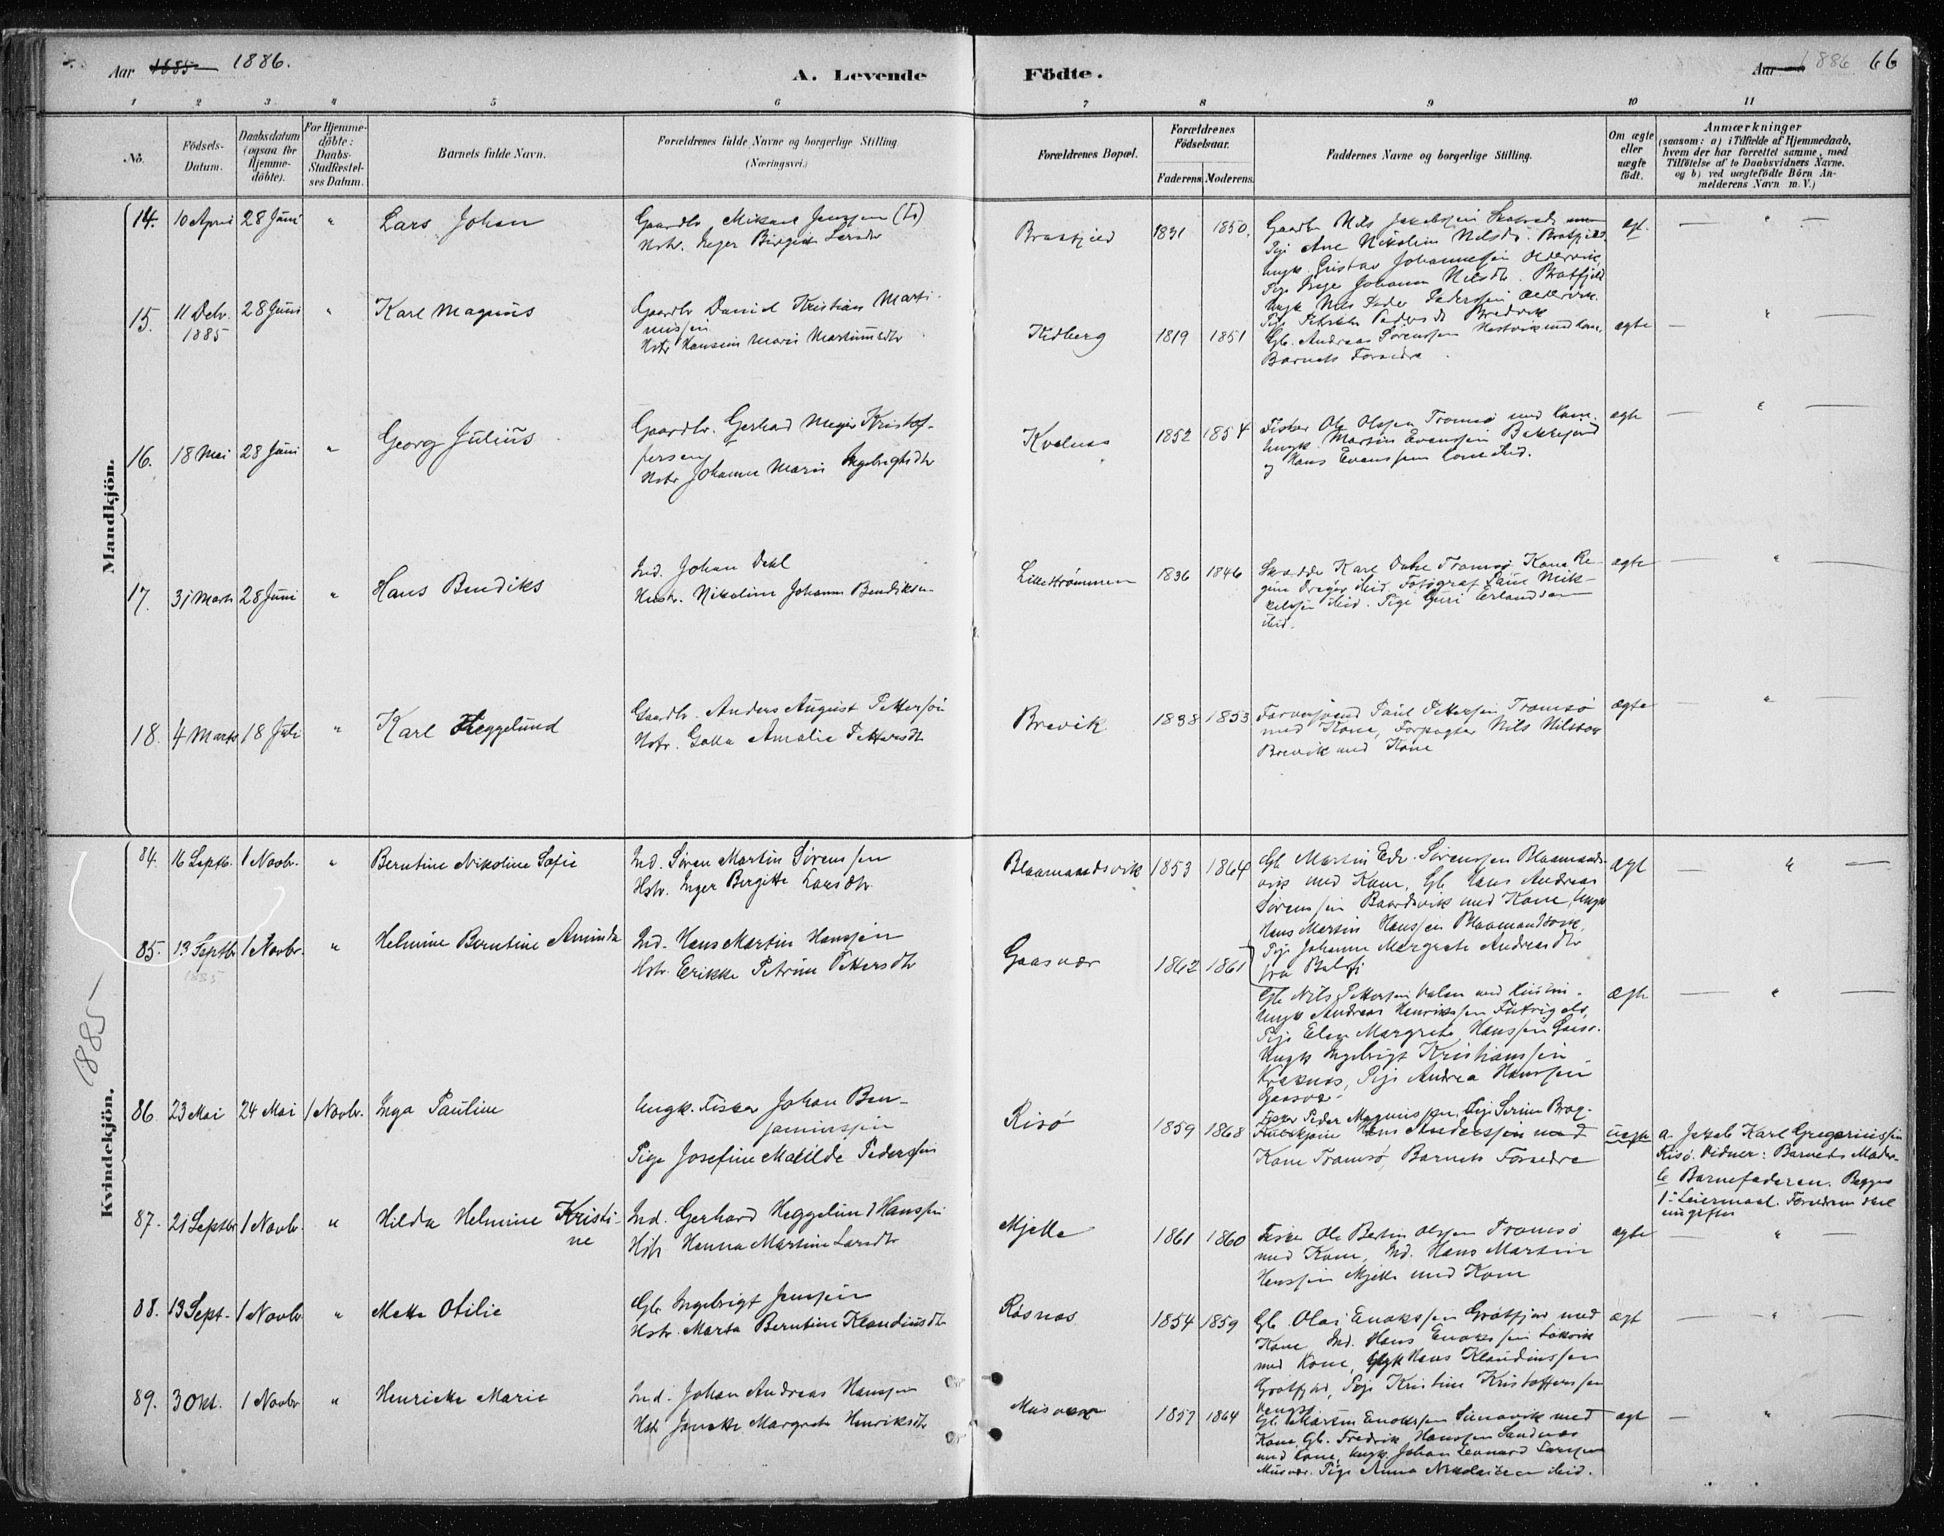 Aar 1885 1886.
A. Levende
Födte.
Aar 1886 66
1 2 3 4 5 6 7 8 9 10 11
No.
Födsels-
Datum.
Daabsdatum
(ogsaa for
Hjemme-
döbte).
For Hjemme-
döbte:
Daabs-
Stadfæstel-
ses Datum.
Barnets fulde Navn.
Forældrenes fulde Navne og borgerlige Stilling
(Næringsvei.)
Forældrenes Bopæl.
Forældrenes
Födselsaar.
Faderens. Moderens.
Faddernes Navne og borgerlige Stilling.
Om ægte
eller
uægte
födt.
Anmærkninger
(saasom: a) i Tilfælde af Hjemmedaab,
hvem der har forrettet samme, med
Tilföielse af to Daabsvidners Navne.
og b) ved uægtefödte Börn An-
melderens Navn m. V.)
Mandkjön.
14. 10 April 28 Juni " Lars Johan
Gaardbr Mikael Jenssen
Hstr. Inger Birgith Larsdtr
1831 1850.
Gaardbr Nils Jakobsen
Pige Ane Nikoline Nilsdtr. Bratfjeld
Ungk. Gustav Johannesen Oldervik,
Pige Inger Johanna Nilsdtr. Bratfjeld
Ungk Nils Peder Pedersen Oldervik.
Pedersdtr Bredvik
ægt.
15. 11 Debr. 28 Juni " Karl Magnus
1885
Gaardbr Daniel Kristian Marti-
nussen
Hstr Hansine Marie Martinusdtr
1819 1851
Gbr. Andreas Sörenssen med Kone
Barnets Forældre.
ægte
16. 18 Mai 28 Juni " Georg Julius
Gaardbr. Gerhard Meyer Kristof-
fersen
Hstr Johanna Marie Ingebrigtsdtr
Kvalnæs
1852 1854
Fisker Ole Olsen Tromsö med Kone.
Ungk Martin Evenssen
og Hans Evenssen Kone ibid.
ægte
17. 31 Marts 28 Juni " Hans Bendiks
Ind. Johan Dahl
Hustr. Nikoline Johanna Bendiksen
Lilleströmmen
1836 1846
Karl Dahl Tromsö Kona Re-
gine Dreyer ibid. Fotograf Paul Mik-
kelsen ibid. Pige Guri Erlandsen
ibid.
ægte
18. 4 Marts 18 Juli " Karl Heggelund
Gaardbr. Anders August Pettersön
Hstr. Golla Amalie Pettersdtr
Brevik
1838 1853
Farversvend Paul Pettersen Tromsö
med Kone, Forpagter Nils Nilsson
Brevik med Kone
ægte
Kvindekjön. 1885
84. 16 Septb. 1 Novbr. " Berntine Nikoline Sofie
Ind. Søren Martin Sørenssen
Hstr. Inger Birgitte Larsdtr.
Blaamandsvik 1853 1864
Gb. Martin Edv. Sørenssen Blaamands-
vik med Kone, Gb. Hans Andreas
Sørenssen Baardsvik med Kone, Ungk
Hans Martin Hanssen Blaamandsvik,
Pige Johanna Margrete Andreasdtr
fra Balsfj
ægt
85. 13 Septbr 1 Novbr. " Helmine Berntine Aminda
1885
Ind. Hans Martin Hanssen
Hstr. Erikke Petrine Pettersdtr
Gaasvær
1862 1861
Gb. Nils Pettersen Valen med Hustru.
Ungk Andreas Henrikssen Futrigelv,
Pige Elen Margrete Hanssen Gaasv.
Ungk Ingebrigt Kristianssen
Kraknæs, Pige Andrea Hanssen
Gaasvær.
ægte
86. 23 Mai 24 Mai 1 Novbr. Inga Pauline
Ungk. Fisker Johan Ben-
jaminssen
Pige Josefine Matilde Pederssen
Risø
1859 1868
Fisker Peder Magnussen, Pige Serine
Hans Anderssen med
Kone Tromsø, Barnets Forældre
uægte
a. Jakob Karl Gregoriussen
Risø. Vidner: Barnets Moder
b Barnefaderen. Begges
1ste Leiermaal. Forældrene
ungifte
87. 21 Septbr 1 Novbr. " Hilda Helmine Kristi-
ne
Ind. Gerhard Heggelund Hanssen
Hstr Hanna Martine Larsdtr
Mjelle
1861 1860
Fisker Ole Bertin Olssen Tromsø
med Kone, Ind. Hans Martin
Hanssen Mjelle med Kone
ægte
88. 13 Sept. 1 Novbr " Mette Otilie
Gb. Ingebrigt Jenssen
Hstr. Marta Berntine Klaudiusdtr
1854 1859
Gb. Olai Enokssen Grøtfjord med
Kone, Ind. Hans Enokssen Løkvik
med Kone, Ungk Hans Klaudiussen
Grøtfjord, Pige Kristine Kristofferssen
ægt
89. 3 Okt. 1 Novbr " Henrikke Marie
Ind. Johan Andreas Hanssen
Hstr Janette Margrete Henriksdtr
Musvær
1857 1864
Gb. Martin Enokssen Simavik med
Kone, Gb. Fredrik Hanssen Sandnæs
med Kone, Ungk. Johan Leonard Larssen
Musvær. Pige Anna Nikolaisen ibid.
ægt